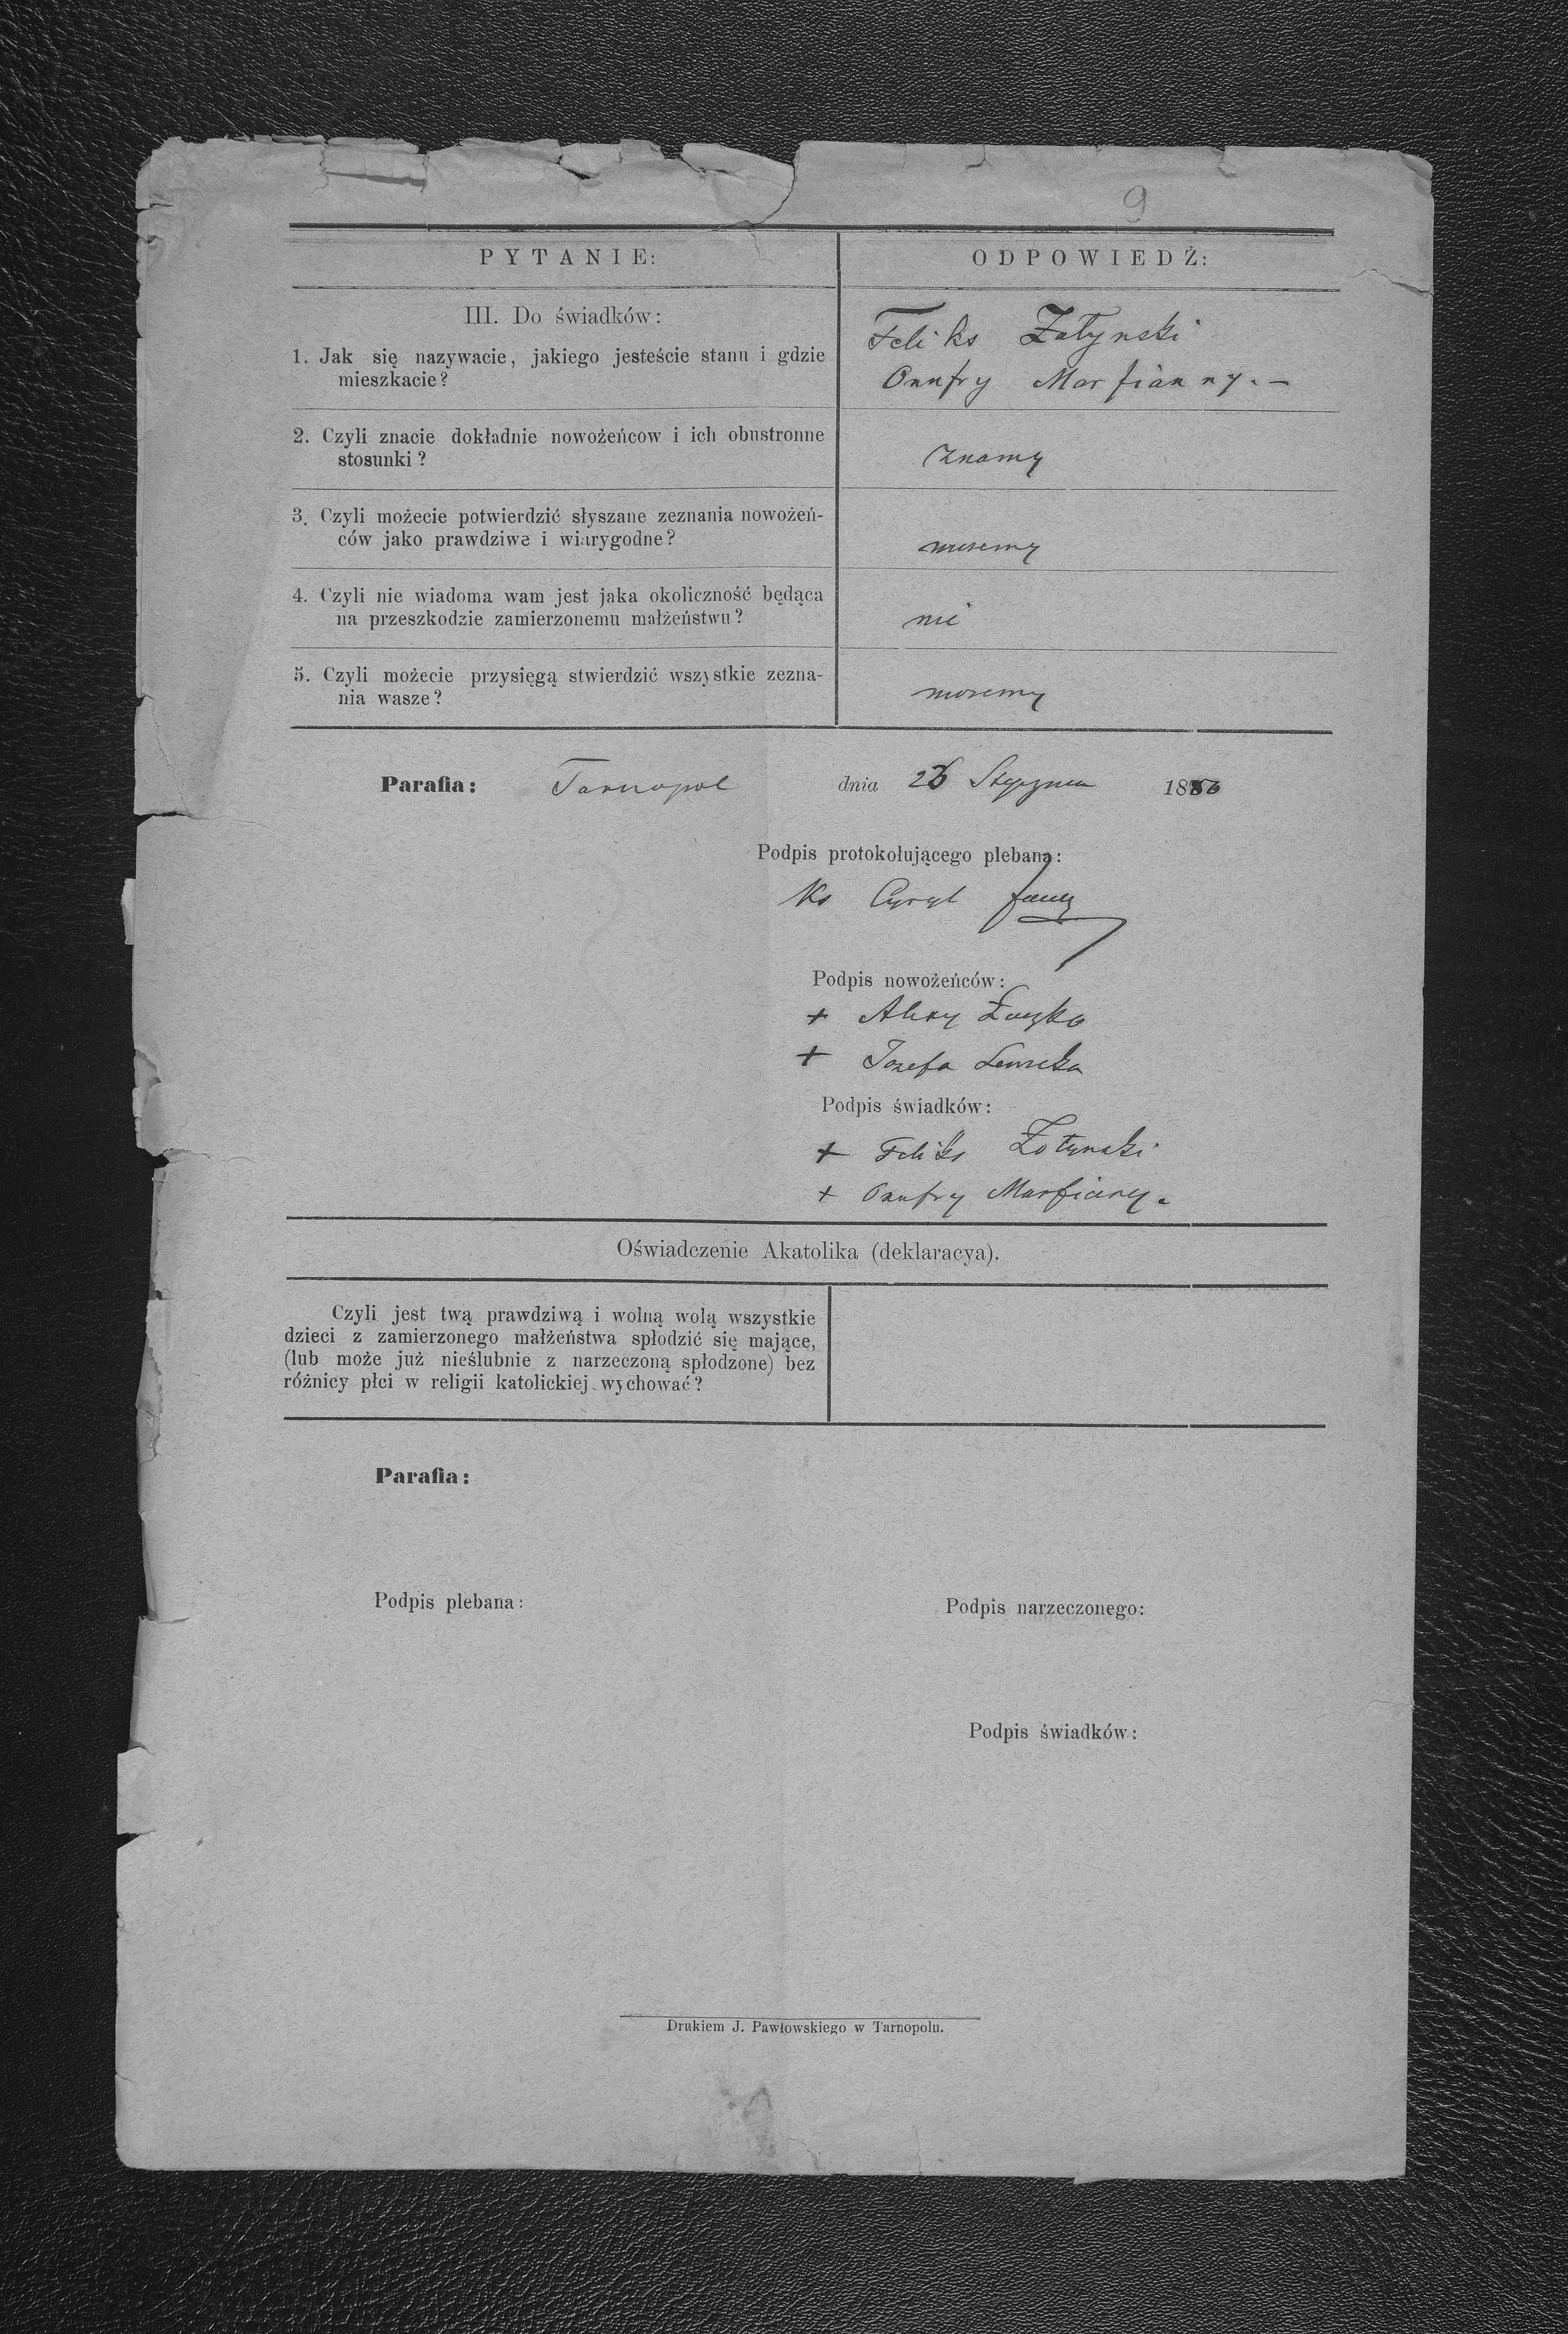 9
PYTANIE:
ODPOWIEDŹ:
III. Do świadków:
1. Jak się nazywacie, jakiego jesteście stanu i gdzie
mieszkacie?
Feliks Żołynski
Onufry Marfianny. —
2. Czyli znacie dokładnie nowożeńców i ich obustronne
stosunki?
znamy
3. Czyli możecie potwierdzić słyszane zeznania nowożeń-
ców jako prawdziwe i wiarygodne?
mozemy
4. Czyli nie wiadoma wam jest jaka okoliczność będąca
na przeszkodzie zamierzonemu małżeństwu?
nie
5. Czyli możecie przysięgą stwierdzić wszystkie zezna-
nia wasze?
mozemy
Parafia: Tarnopol dnia 26 Stycznia 1886
Podpis protokołującego plebana:
Ks Cyryl
Podpis nowożeńców:
+ Alexy
+ Jozefa
Podpis świadków:
+ Feliks Żołynski
+ Onufry Marfiany.
Oświadczenie Akatolika (deklaracya).
Czyli jest twą prawdziwą i wolną wolą wszystkie
dzieci z zamierzonego małżeństwa spłodzić się mające,
(lub może już nieślubnie z narzeczoną spłodzone) bez
różnicy płci w religii katolickiej wychować?
Parafia:
Podpis plebana:
Podpis narzeczonego:
Podpis świadków:
Drukiem J. Pawłowskiego w Tarnopolu.